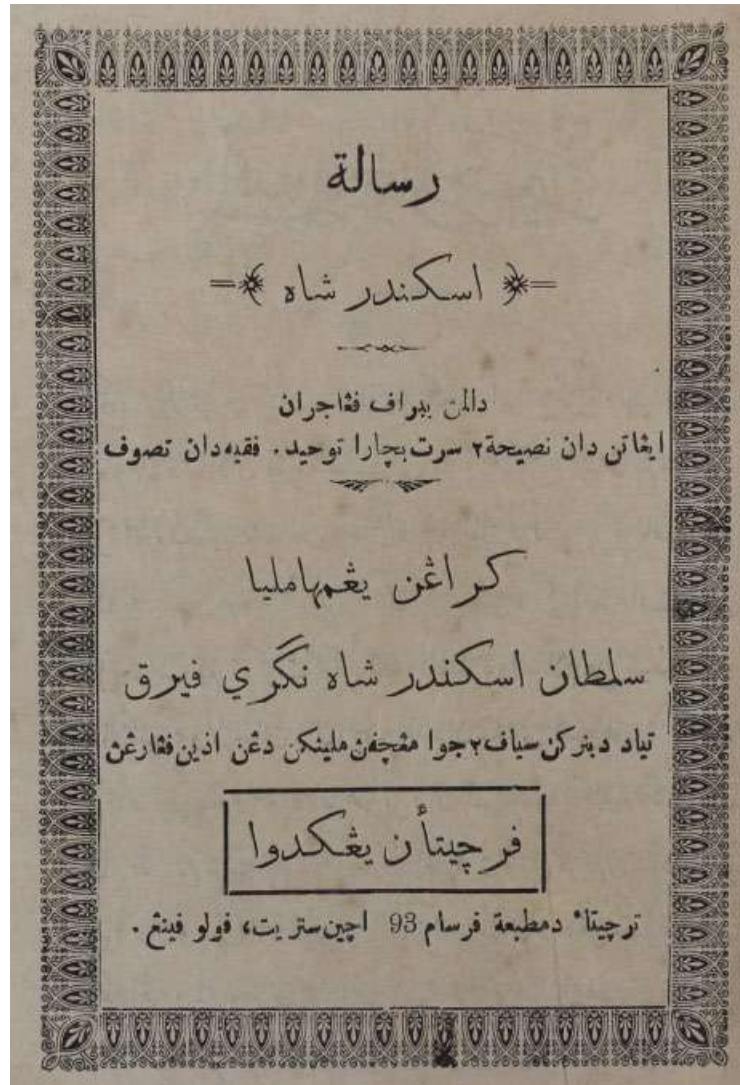 رسالة
اسكندر شاه
دالمن ببراف ڤڠاجران
ايڠاتن دان نصيحة٢ سرت بچارا توحيد. فقيه دان تصوف
كراڠن يڠمهامليا
سلطان اسكندر شاه نڬري فيرق
تياد دبنركن سياف٢ جوا مڠچفن ملينكن دڠن اذين ڤڠارڠن
فرچيتأن يڠكدوا
ترچيتاء دمطبعة فرسام 93 اچين ستريت، فولو فينڠ.